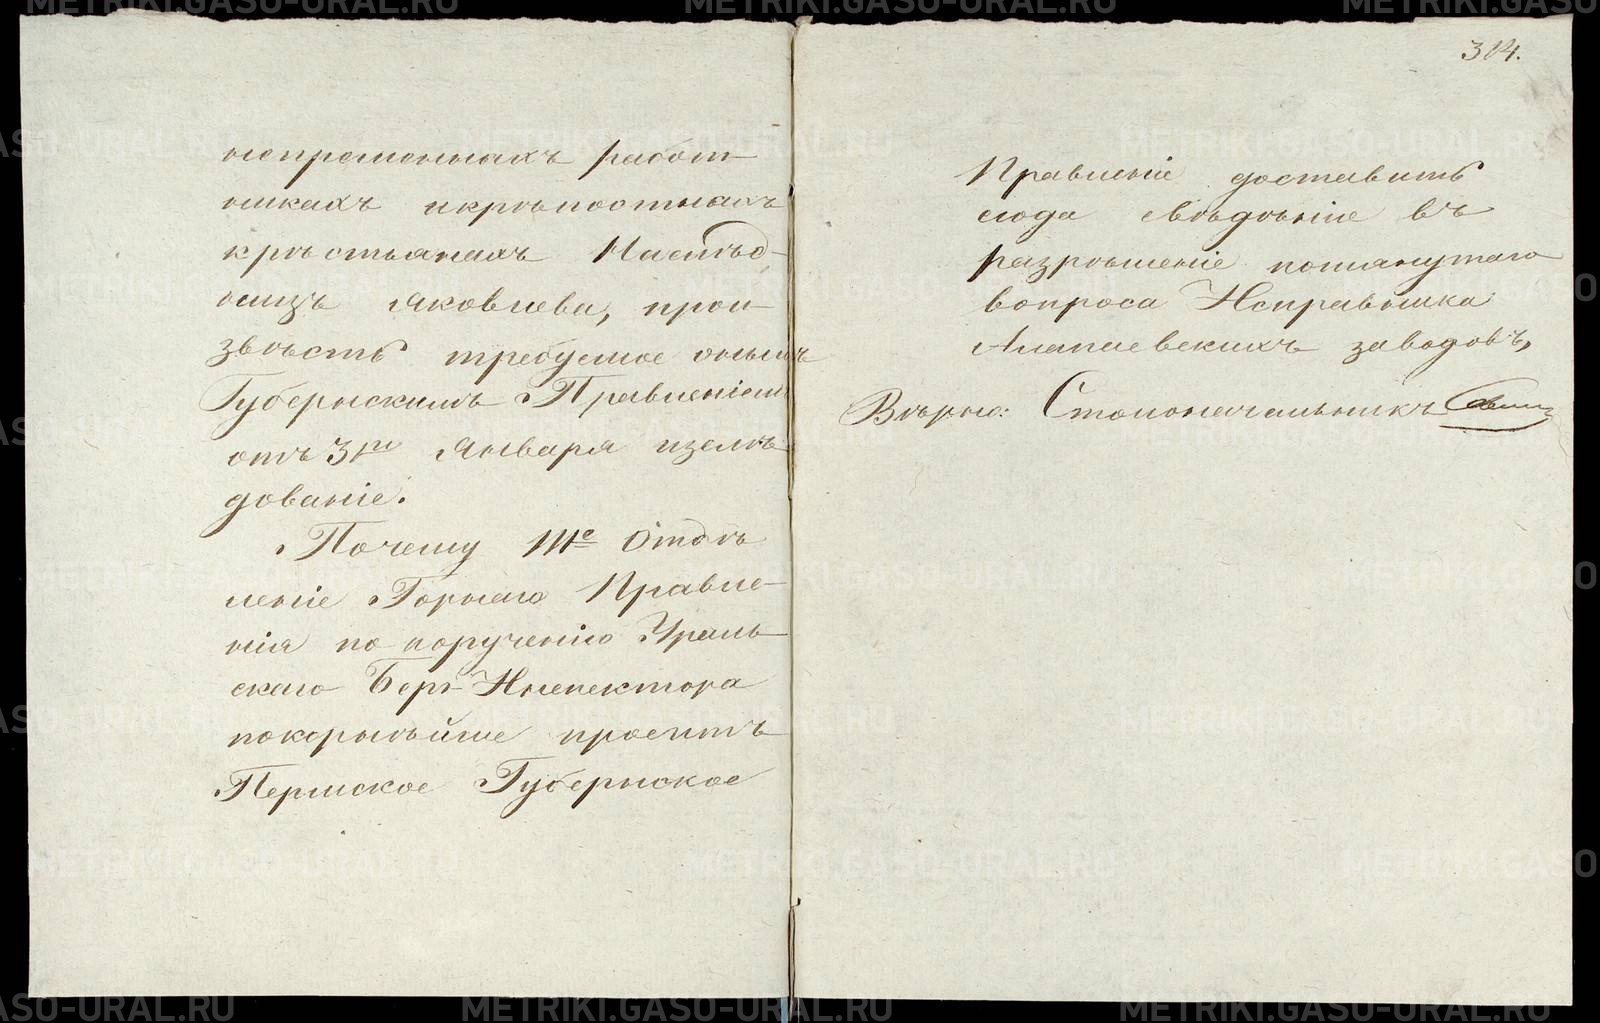 непременныхъ работ
никахъ и крѣпостныхъ
крѣстьянахъ Наслѣд-
ницъ Яковлева, прои
звѣсть требуемое онымъ
Губернскимъ Правленіемъ
отъ 31го Января изслѣ-
дованіе.
Почему IIIе Отдѣ
леніе Горнаго Правле-
нія по порученію Ураль-
скаго Берг-Инспектора
покорнѣйше проситъ
Пермское Губернское
314.
Правленіе доставить
сюда свѣдѣніе въ
разрѣшеніе помянутаго
вопроса Исправника
Алапаевскихъ заводовъ,
Вѣрно: Столоначальникъ
METRIKI.GASO-URAL.RU